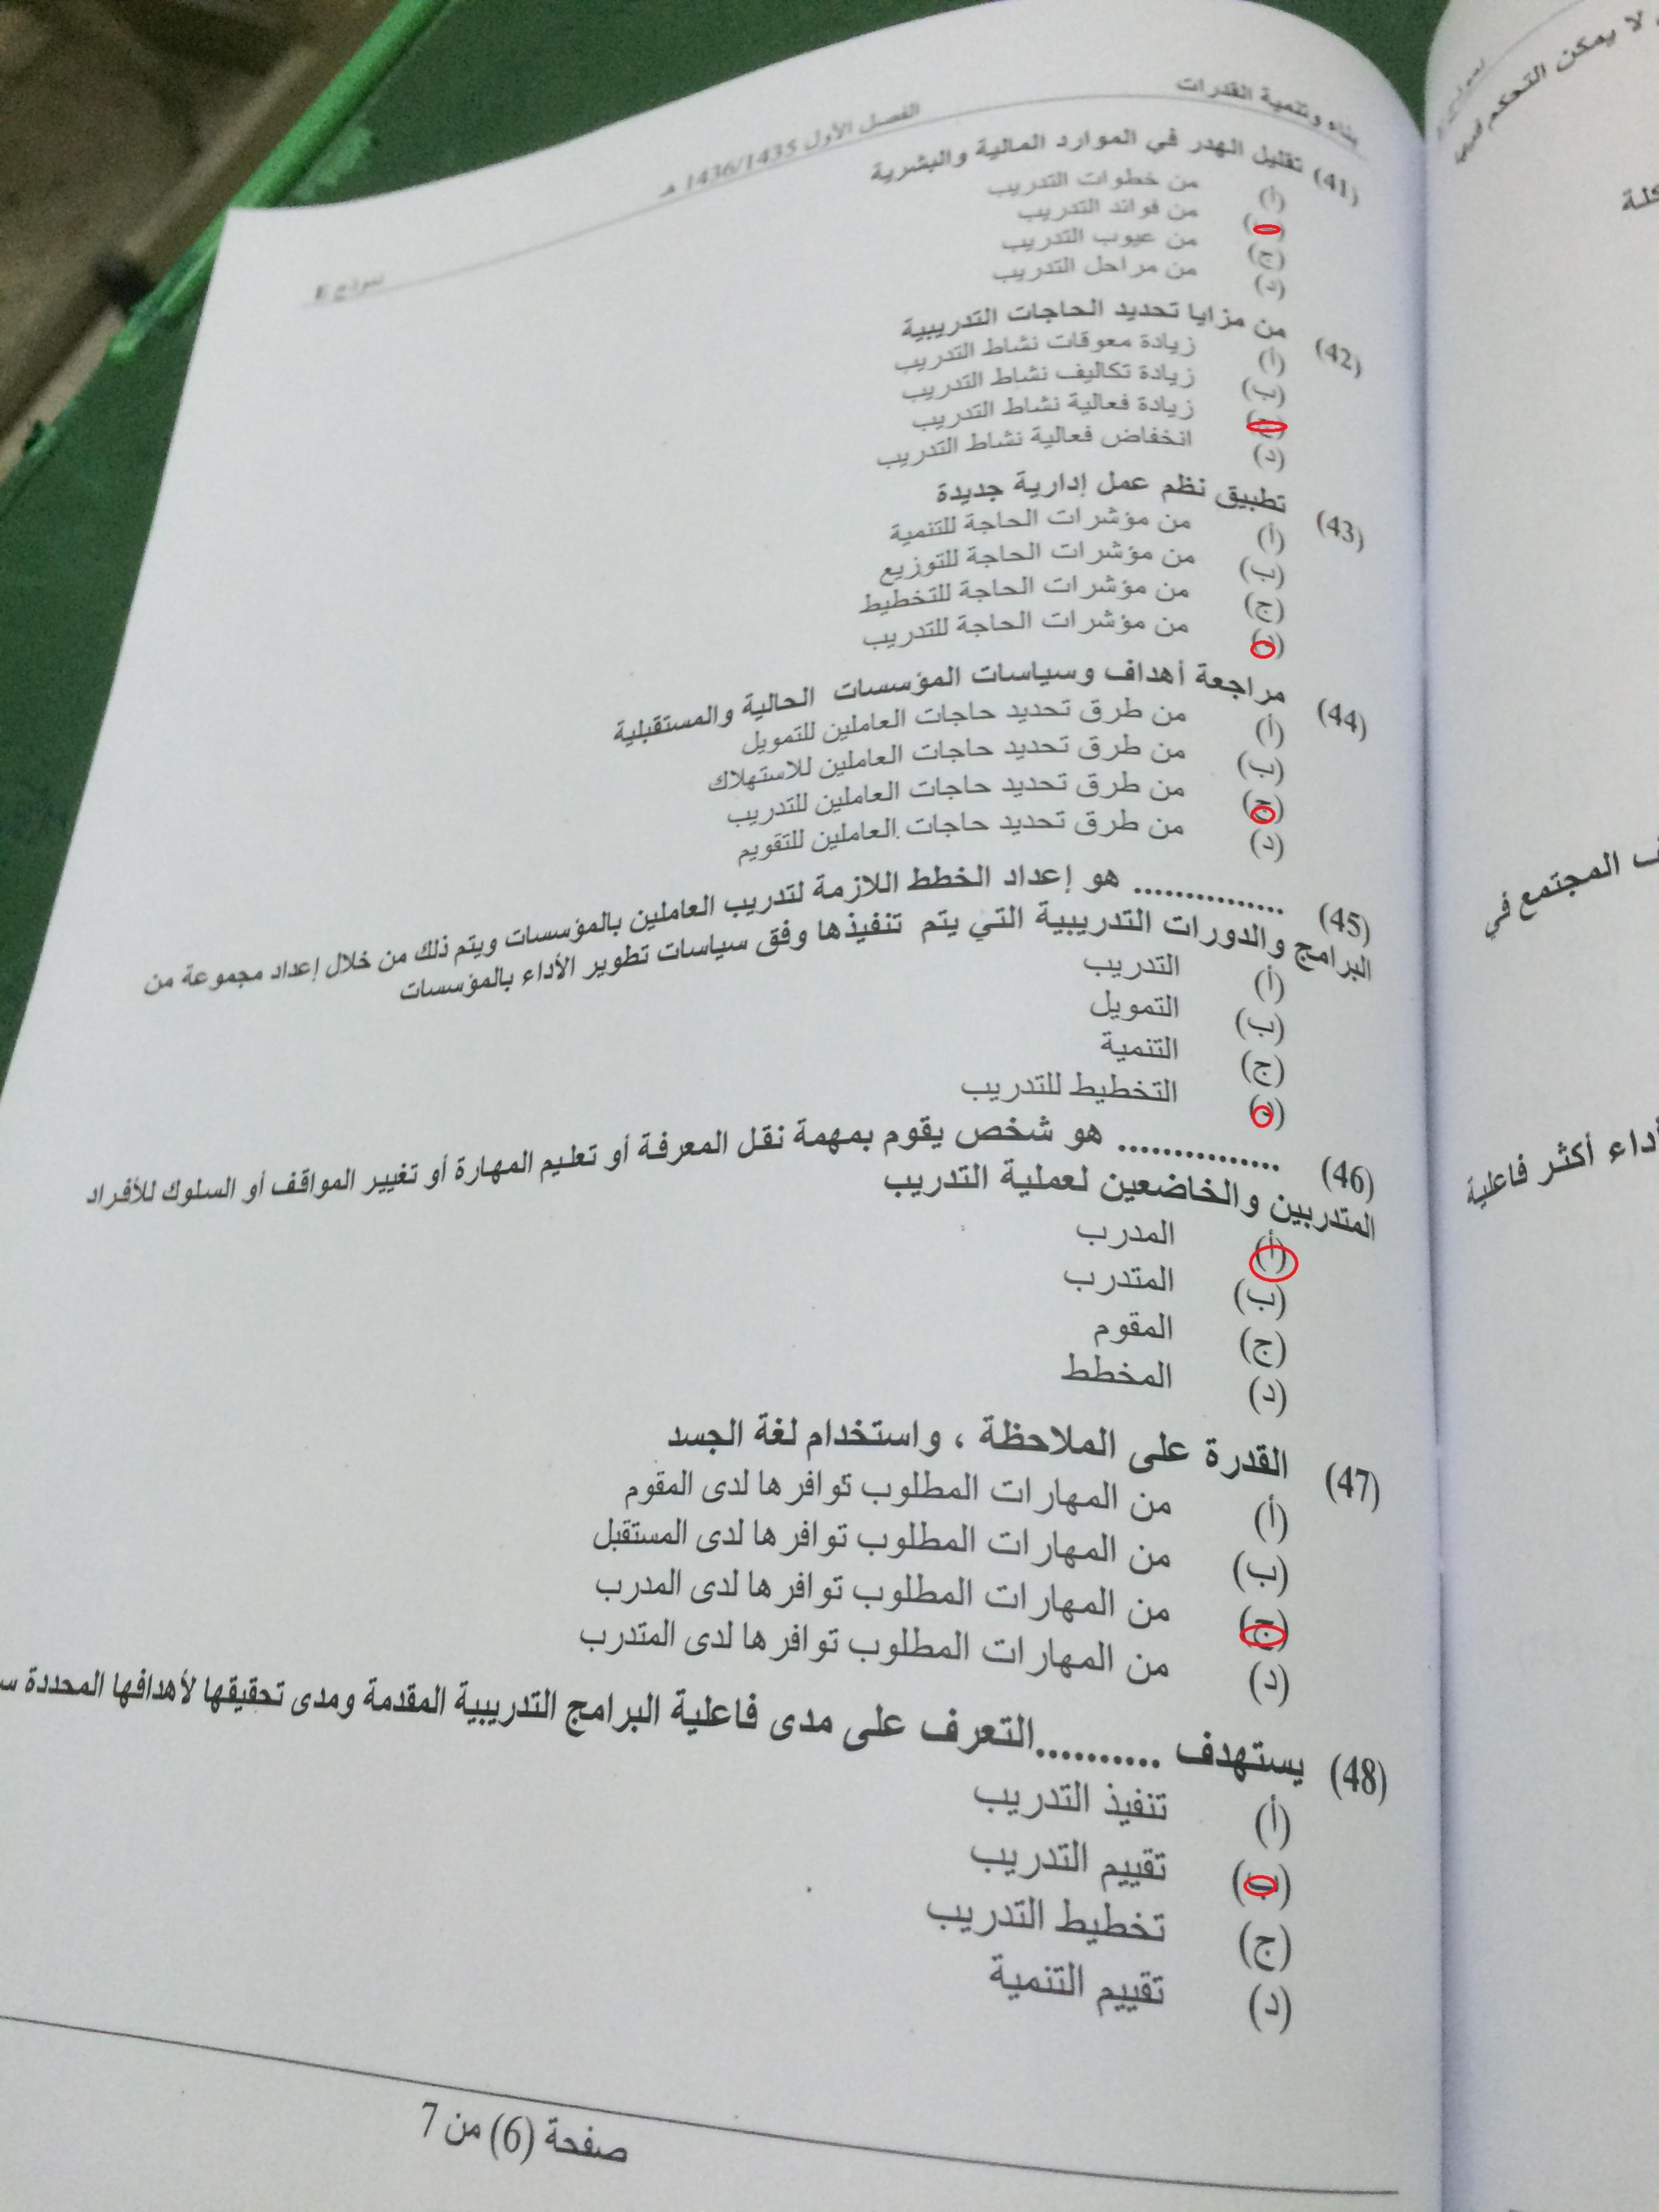 بناء وتنمية القدرات
الفصل الأول 1436/1435 هـ
نموذج E
(41) تقليل الهدر في الموارد المالية والبشرية
(أ) من خطوات التدريب
(ب) من فوائد التدريب
(ج) من عيوب التدريب
(د) من مراحل التدريب
(42) من مزايا تحديد الحاجات التدريبية
(أ) زيادة معوقات نشاط التدريب
(ب) زيادة تكاليف نشاط التدريب
(ج) زيادة فعالية نشاط التدريب
(د) انخفاض فعالية نشاط التدريب
(43) تطبيق نظم عمل إدارية جديدة
(أ) من مؤشرات الحاجة للتنمية
(ب) من مؤشرات الحاجة للتوزيع
(ج) من مؤشرات الحاجة للتخطيط
(د) من مؤشرات الحاجة للتدريب
(44) مراجعة أهداف وسياسات المؤسسات الحالية والمستقبلية
(أ) من طرق تحديد حاجات العاملين للتمويل
(ب) من طرق تحديد حاجات العاملين للاستهلاك
(ج) من طرق تحديد حاجات العاملين للتدريب
(د) من طرق تحديد حاجات العاملين للتقويم
(45) .............. هو إعداد الخطط اللازمة لتدريب العاملين بالمؤسسات ويتم ذلك من خلال إعداد مجموعة من
البرامج والدورات التدريبية التي يتم تنفيذها وفق سياسات تطوير الأداء بالمؤسسات
(أ) التدريب
(ب) التمويل
(ج) التنمية
(د) التخطيط للتدريب
(46) ............... هو شخص يقوم بمهمة نقل المعرفة أو تعليم المهارة أو تغيير المواقف أو السلوك للأفراد
المتدربين والخاضعين لعملية التدريب
(أ) المدرب
(ب) المتدرب
(ج) المقوم
(د) المخطط
(47) القدرة على الملاحظة ، واستخدام لغة الجسد
(أ) من المهارات المطلوب توافرها لدى المقوم
(ب) من المهارات المطلوب توافرها لدى المستقبل
(ج) من المهارات المطلوب توافرها لدى المدرب
(د) من المهارات المطلوب توافرها لدى المتدرب
(48) يستهدف ...........التعرف على مدى فاعلية البرامج التدريبية المقدمة ومدى تحقيقها لأهدافها المحددة
(أ) تنفيذ التدريب
(ب) تقييم التدريب
(ج) تخطيط التدريب
(د) تقييم التنمية
صفحة (6) من 7
لا يمكن التحكم فيها
المجتمع في
أداء أكثر فاعلية